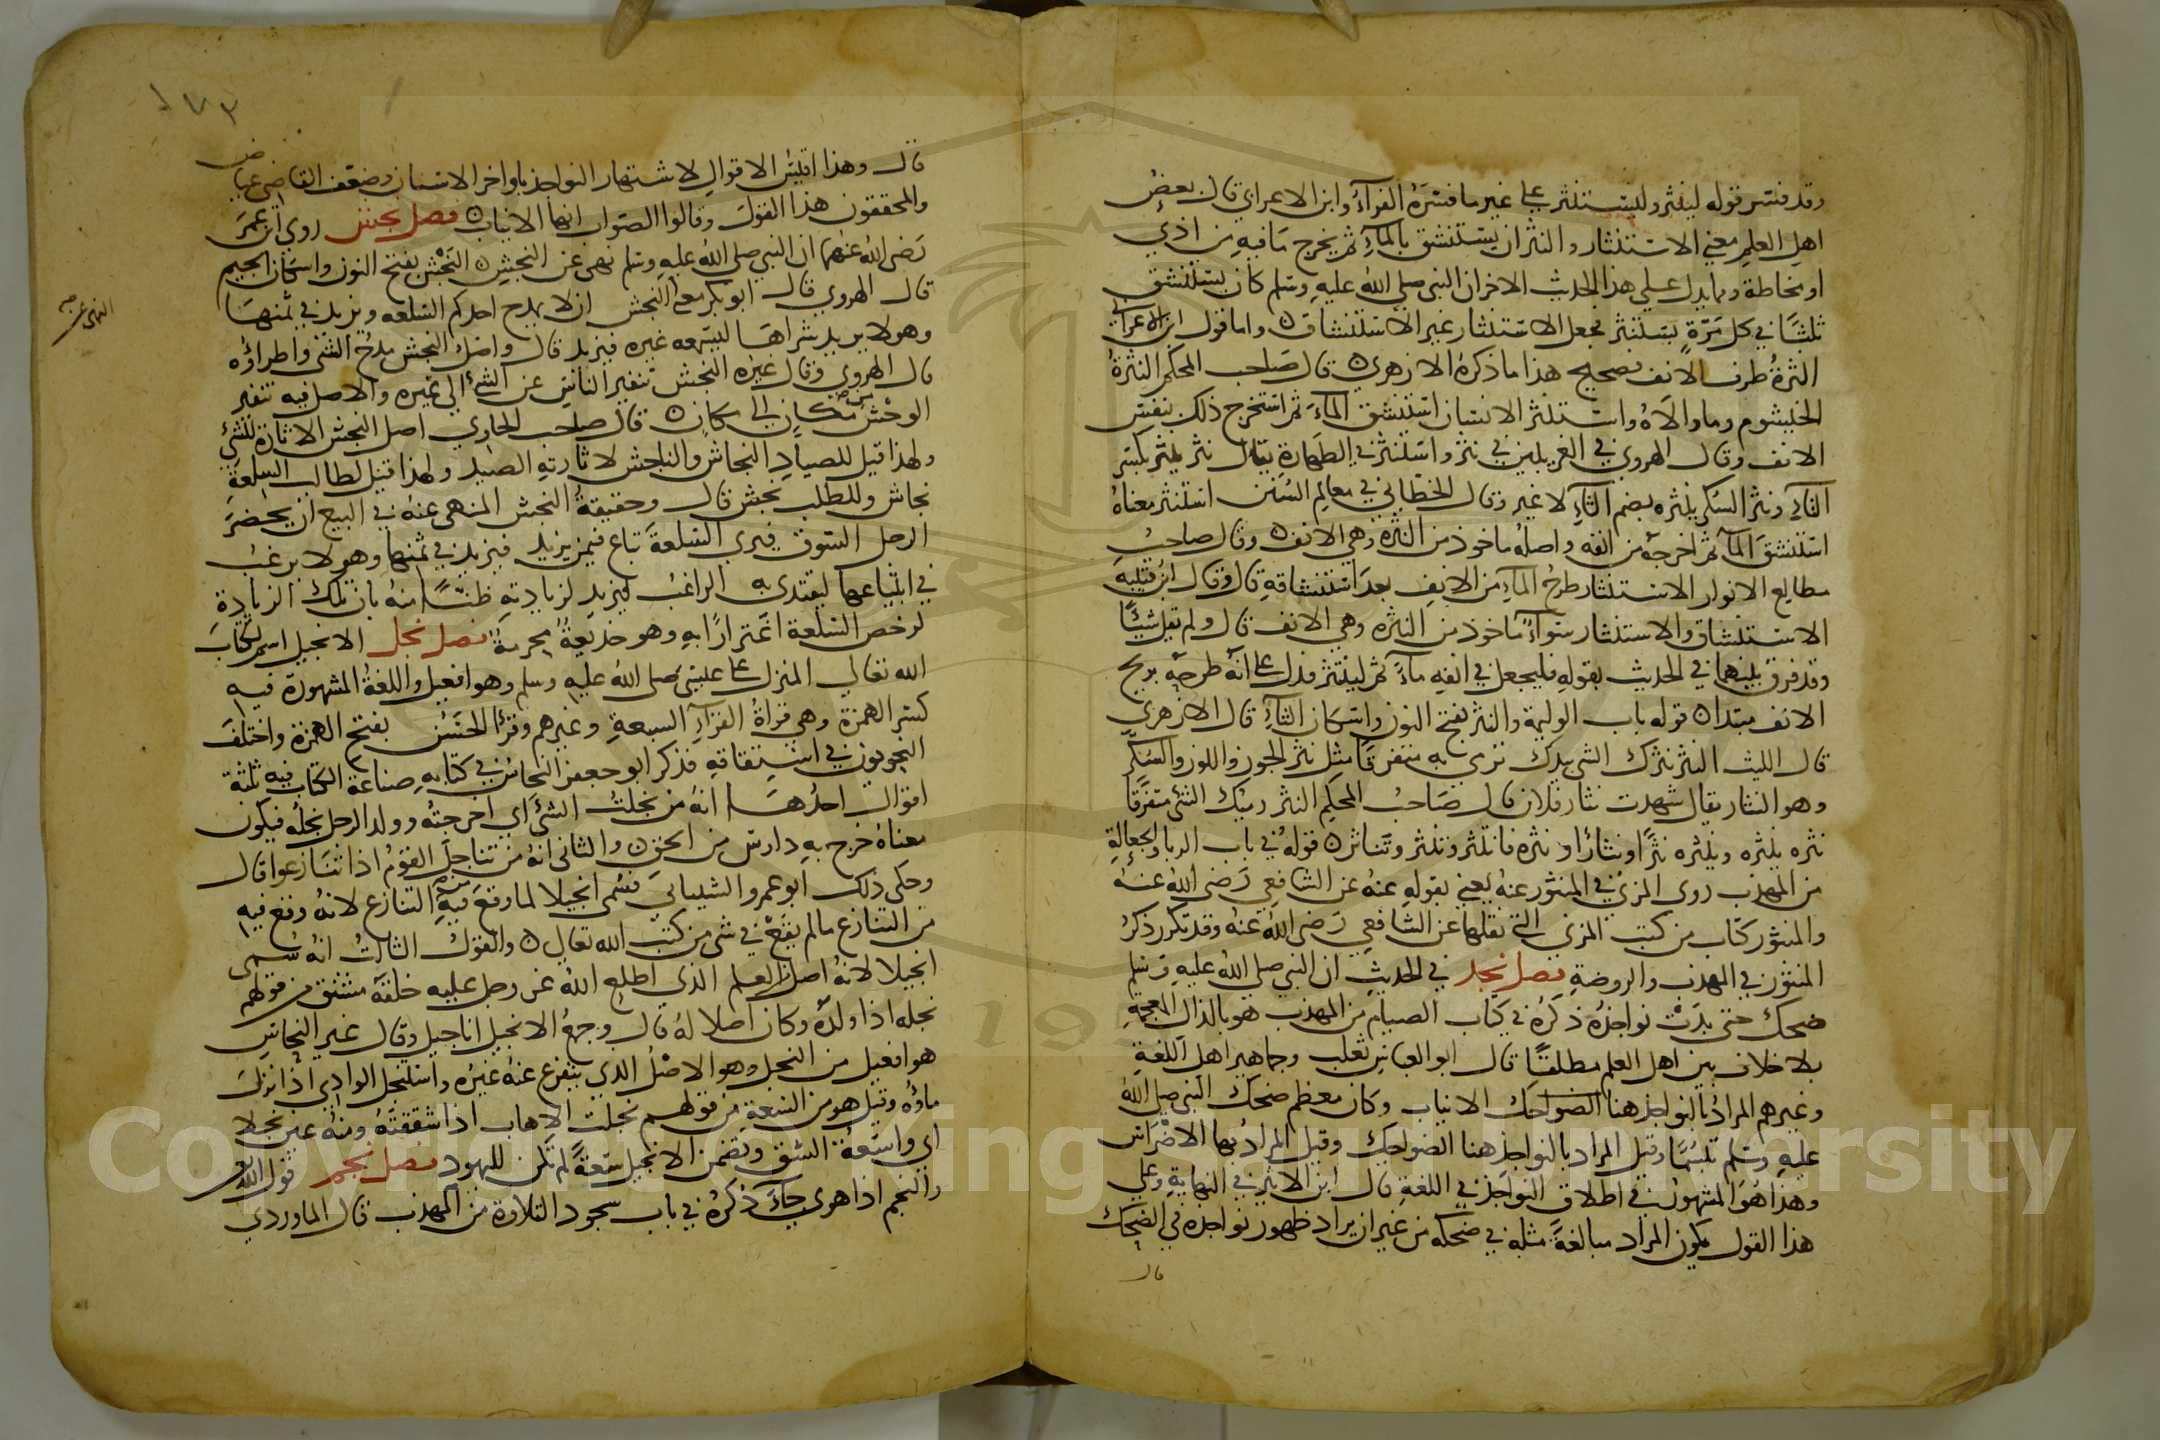 وقد فسر قوله لينثر وليستنثر على غير ما فسره الفرآء وابن الاعرابي قال بعض
اهل العلم معنى الاستنثار والنثر ان يستنشق بالمآء ثم يخرج ما فيه من اذى
او مخاطة ومما يدل على هذا الحديث الاخر ان النبي صلى الله عليه وسلم كان يستنشق
ثلثا في كل مرة يستنثر فجعل الاستنثار غير الاستنشاق واما قول ابن الاعرابي
النثرة طرف الانف فصحيح هذا ما ذكره الازهري قال صاحب المحكم النثرة
الخيشوم وما والاه واستنثر الانسان استنشق المآء ثم استخرج ذلك بنفس
الانف وقال الهروي في الغريبين في نثر واستنثر في الطهارة يقال نثر ينثر بكسر
الثاني ونثر السكر ينثره بضم الثآء لا غير وقال الخطابي في معالم السنن استنثر معناه
استنشق المآ ثم اخرجه من انفه واصله ماخوذ من النثره وهي الانف وقال صاحب
مطالع الانوار الاستنثار طرح المآء من الانف بعد استنشاقه قال وقال ابن قتيبة
الاستنشاق والاستنثار سوآء ماخوذ من النثره وهي الانف قال ولم يقل شيئا
وقد فرق بينهما في الحديث بقوله فليجعل في انفه مآء ثم لينتثر فدل على انه طرحه بريح
الانف مبتدا قوله باب الوليمة والنثر بفتح النون واسكان الثآء قال الازهري
قال الليث النثر نثرك الشي بيدك ترمي به متفرقا مثل نثر الجوز واللوز والسكر
وهو النثار يقال شهدت نثار فلان قال صاحب المحكم النثر رميك الشئ متفرقا
نثره ينثره وينثره نثرا ونثارا ونثره فانتثر وتنثر وتناثر قوله في باب الربا والجعالة
من المهذب روى المزني في المنثور عنه يعني بقوله عنه عن الشافعي رضى الله عنه
والمنثور كتاب من كتب المزني التي نقلها عن الشافعي رضى الله عنه وقد تكرر ذكر
المنثور في المهذب والروضة فصل نجذ في الحديث ان النبي صلى الله عليه وسلم
ضحك حتى بدت نواجذه ذكره في كتاب الصيام من المهذب هو بالذال المعجمة
بلا خلاف بين اهل العلم مطلقا قال ابو العباس ثعلب وجماهير اهل اللغة
وغيرهم المراد بالنواجذ هنا الضواحك الانياب وكان معظم ضحك النبي صلى الله
عليه وسلم تبسما وقيل المراد بالنواجذ هنا الضواحك وقيل المراد بها الاضراس
وهذا هو المشهور في اطلاق النواجذ في اللغة قال ابن الاثير في النهاية وعلى
هذا القول يكون المراد مبالغة مثله في ضحكه من غير ان يراد ظهور نواجذه في الضحك
قال
١٧٣
قال وهذا اقيس الاقوال لاشتهار النواجذ باواخر الاسنان وضعف القاضي عياض
والمحققون هذا القول وقالوا الصواب انها الانياب فصل نجش روى ابن عمر
رضى الله عنهما ان النبي صلى الله عليه وسلم نهى عن النجش النجش بفتح النون واسكان الجيم
قال الهروي قال ابو بكر معنى النجش ان لا يمدح احدكم السلعه ويزيد في ثمنها
وهو لا يريد شراها ليسمعه غيره فيزيد قال واصل النجش مدح الشئ واطراؤه
قال الهروي وقال غيره النجش تنفير الناس عن الشئ الى غيره والاصل فيه تنفير
الوحش من مكان الى مكان قال صاحب الحاوي اصل النجش الاثارة للشئ
ولهذا قيل للصياد النجاش والناجش لاثارته الصيد ولهذا قيل لطالب السلعة
نجاش وللطلب نجش قال وحقيقة النجش المنهى عنه في البيع ان يحضر
الرجل السوق فيرى السلعة تباع فيمن يزيد فيزيد في ثمنها وهو لا يرغب
في ابتياعها ليقتدى به الراغب فيزيد لزيادته ظنا منه بان تلك الزيادة
لرخص السلعة اغترارا به وهو خديعة محرمة فصل نجل الانجيل اسم لكتاب
الله تعالى المنزل على عيسى صلى الله عليه وسلم وهو افعيل واللغة المشهورة فيه
كسر الهمزة وهي قراة القرآء السبعة وغيرهم وقرا الحسن بفتح الهمزة واختلف
النحويون في اشتقاقه فذكر ابو جعفر النحاس في كتابه صناعة الكتاب فيه ثلثة
اقوال احدها انه من نجلت الشئ اي اخرجته وولد الرجل نجله فيكون
معناه خرج به دارس من الحق والثاني انه من تناجل القوم اذا تنازعوا قال
وحكى ذلك ابو عمرو الشيباني فسمى انجيلا لما وقع فيه من التنازع لانه وقع فيه
من التنازع ما لم يقع في شى من كتب الله تعالى والقول الثالث انه سمى
انجيلا لانه اصل العلم الذي اطلع الله عز وجل عليه خلقه مشتق من قولهم
نجله اذا ولده وكان اصلا له قال وجمع الانجيل اناجيل وقال غير النحاس
هو افعيل من النجل وهو الاصل الذي يتفرع عنه غيره واستنجل الوادي اذا نز
ماؤه وقيل هو من السعة من قولهم نجلت الاهاب اذا شققته ومنه عين نجلا
اي واسعة الشق وتضمن الانجيل سعة لم تكن لليهود فصل نجم قول الله تعالى
والنجم اذا هوى جآء ذكره في باب سجود التلاوة من المهذب قال الماوردي
Copyright © King Saud University